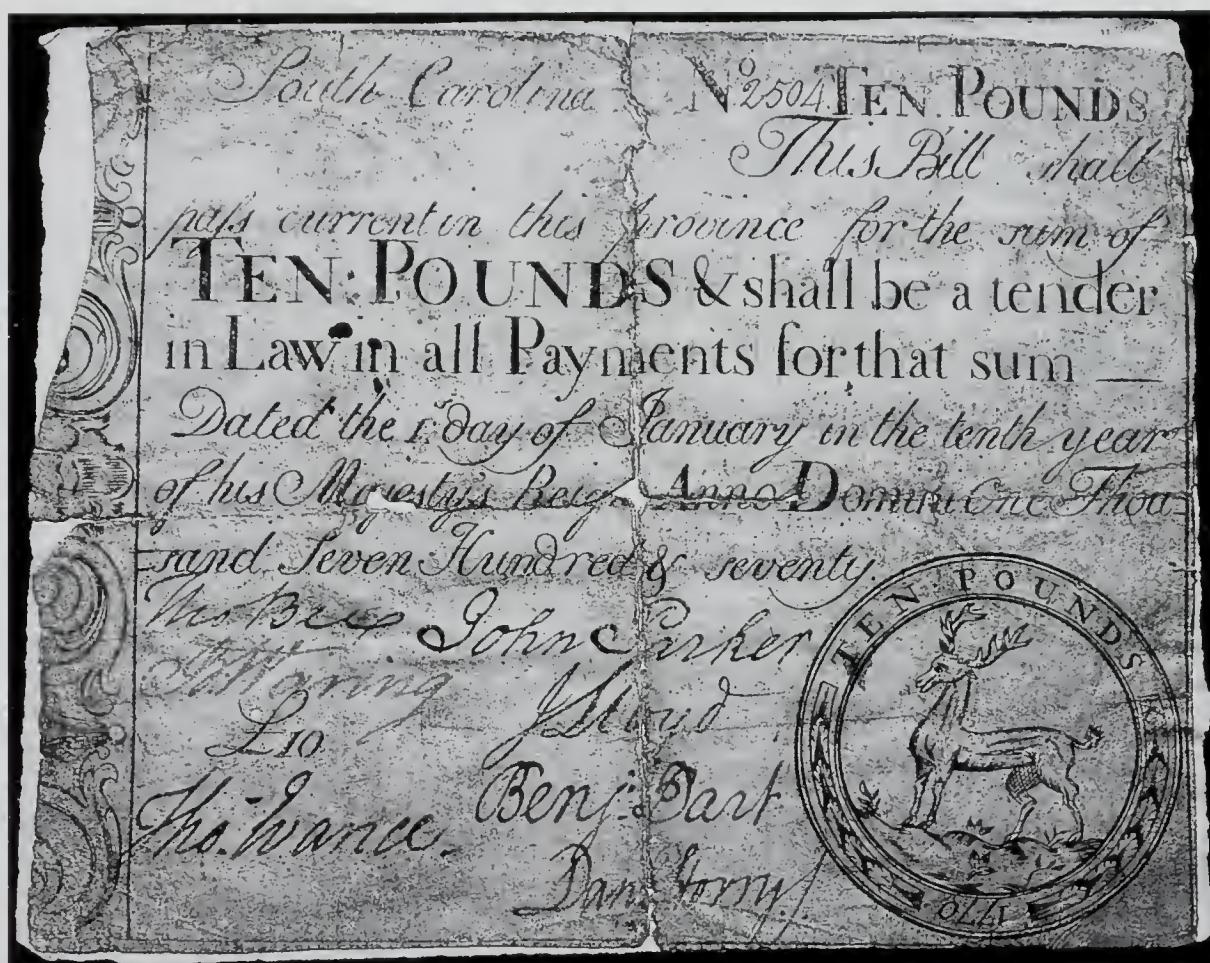 South Carolina Nº 2504 TEN POUNDS
This Bill shall
pass current in this province for the sum of
TEN: POUNDS & shall be a tender
in Law in all Payments for that sum —
Dated the 1.st day of January in the tenth year
of his Majesty's Reign Anno Domini One Thou-
sand Seven Hundred & seventy.
Tho Bee John Parker
Waring
J Lloyd
£10
Benj: Dart
Tho. Evance.
Dan
TEN POUNDS
1770